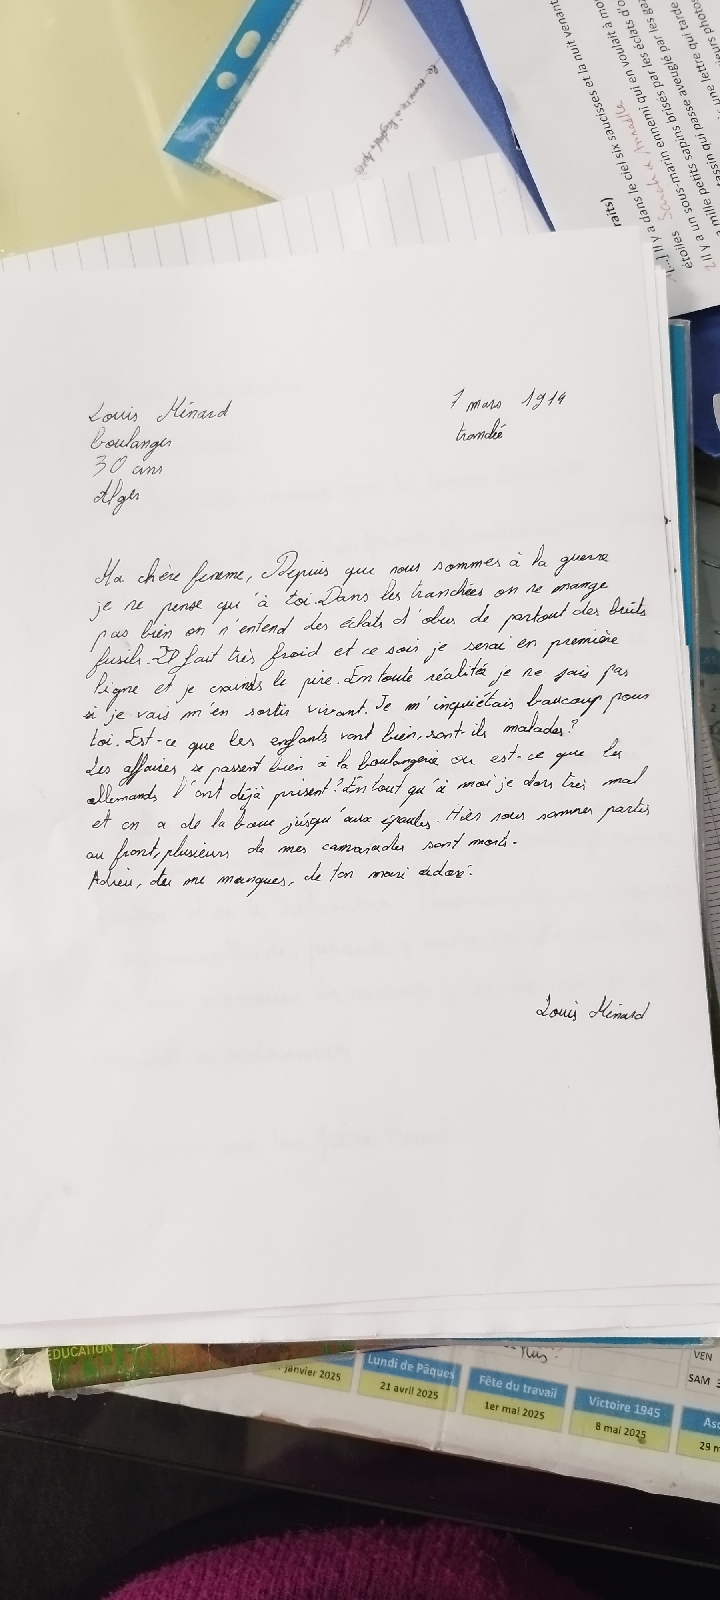 Louis Ménard
boulanger
30 ans
Alger
7 mars 1914
tranchée
Ma chère femme, Depuis que nous sommes à la guerre
je ne pense qu'à toi. Dans les tranchées on ne mange
pas bien on n'entend des éclats d'obus de partout des bruits
fusils. Il fait très froid et ce soir je serai en première
ligne et je crainds le pire. En toute réalitée je ne sais pas
si je vais m'en sortir vivant. Je m'inquiétais baucoup pour
toi. Est-ce que les enfants vont bien, sont-ils malades?
Les affaires se passent bien à la boulangerie ou est-ce que les
allemands l'ont déjà prisent? En tout qu'à moi je dors très mal
et on a de la boue jusqu'aux épaules. Hier nous sommes partis
au front, plusieurs de mes camarades sont morts.
Adieu, tu me manques, de ton mari adoré.
Louis Ménard
raits)
[...] Il y a dans le ciel six saucisses et la nuit venant
étoiles
Il y a un sous-marin ennemi qui en voulait à mo
mille petits sapins brisés par les éclats d'o
tassin qui passe aveuglé par les gaz
une lettre qui tarde
ieurs photos
EDUCATION
janvier 2025
Lundi de Pâques
21 avril 2025
Fête du travail
1er mai 2025
Victoire 1945
8 mai 2025
Asc
29 m
VEN
SAM 3